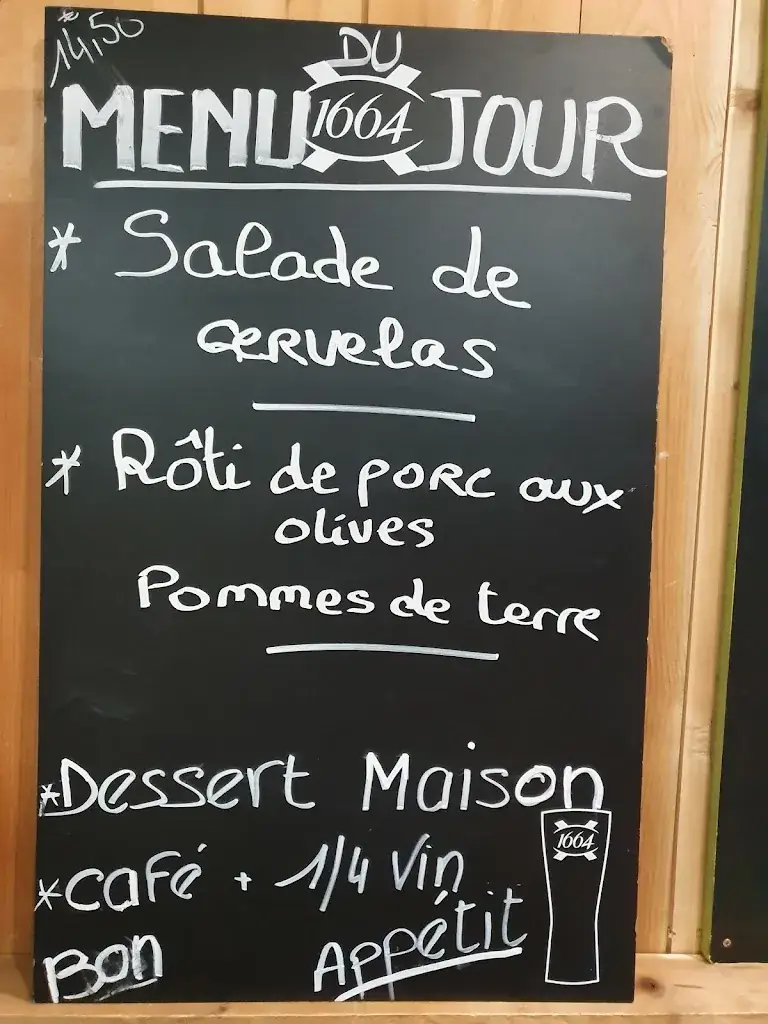 14,50
DU
MENU 1664 JOUR
* Salade de
cervelas
* Rôti de porc aux
olives
Pommes de terre
*Dessert Maison
*Café + 1/4 Vin
1664
Bon Appétit